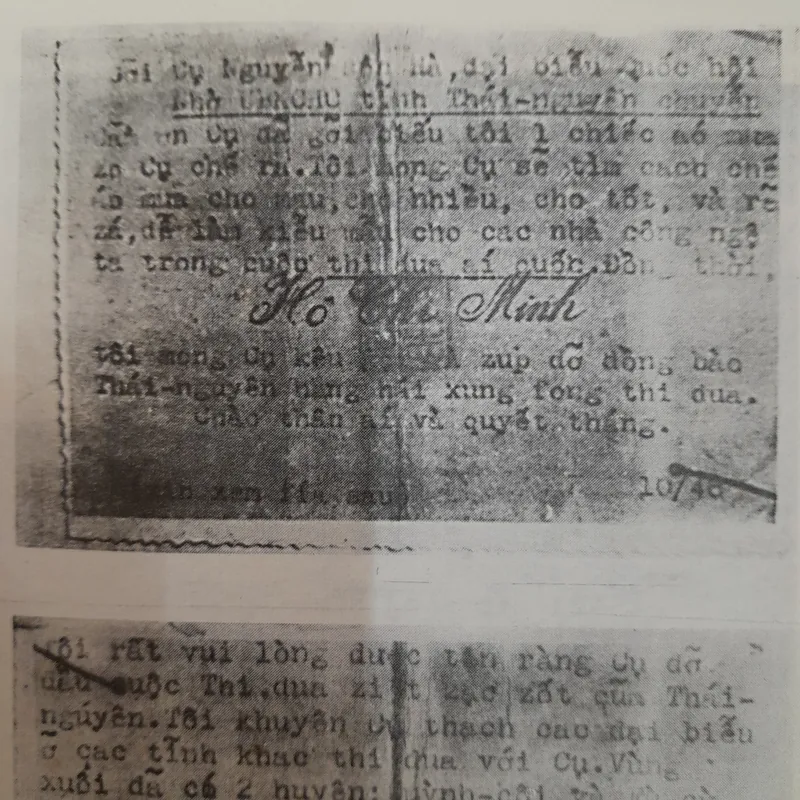 Gởi Cụ Nguyễn Hà, đại biểu Quốc hội
Nhờ UBKCHC tỉnh Thái-nguyên chuyển
Cụ đã gởi biếu tôi 1 chiếc aó
Cụ chế ra. Tôi mong Cụ sẽ tìm cach chế
cho mau, cho nhiều, cho tốt, và rẽ
zá, để làm kiểu mẫu cho các nhà công ngệ
ta trong cuộc thi đua aí quốc. Đồng thời,
Hồ Chí Minh
tôi mong Cụ kêu zup dỡ đồng bào
Thái-nguyên hăng hái xung fong thi đua.
Chào thân aí và quyết tháng.
xem sau
10/48
Tôi rất vui lòng được tên ràng Cụ dã
đầu cuộc Thi đua ziệt zặc zốt của Thái-
nguyên. Tôi khuyên Cụ thach cac đại biểu
ở các tỉnh khac thi đua với Cụ. Vùng
xuôi đã có 2 huyện: